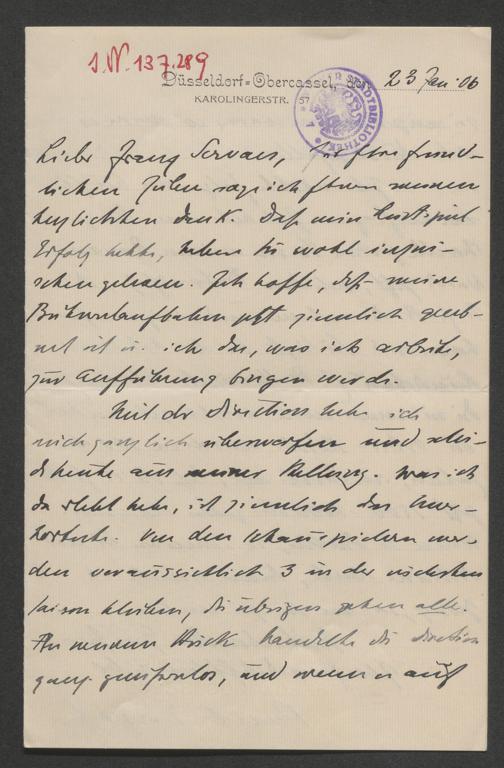 I.N. 137.289
Düsseldorf-Obercassel, den 23 Jan. 06
KAROLINGERSTR. 57
STADTBIBLIOTHEK
Lieber Franz Servaes, für Ihre freund-
lichen Zeilen sage ich Ihnen meinen
herzlichsten Dank. Daß mein Lustspiel
Erfolg hatte, haben Sie wohl inzwi-
schen gelesen. Ich hoffe, daß meine
Bühnenlaufbahn jetzt ziemlich geeb-
net ist u. ich das, was ich arbeite,
zur Aufführung bringen werde.
Mit der Direction habe ich
mich gänzlich überworfen und schei-
de heute aus meiner Stellung. Was ich
da erlebt habe, ist ziemlich das Uner-
hörteste. Von den Schauspielern wer-
den voraussichtlich 3 in der nächsten
Saison bleiben, die übrigen gehen alle.
An meinem Stück handelte die Direction
ganz gewissenlos, und wenn er auf